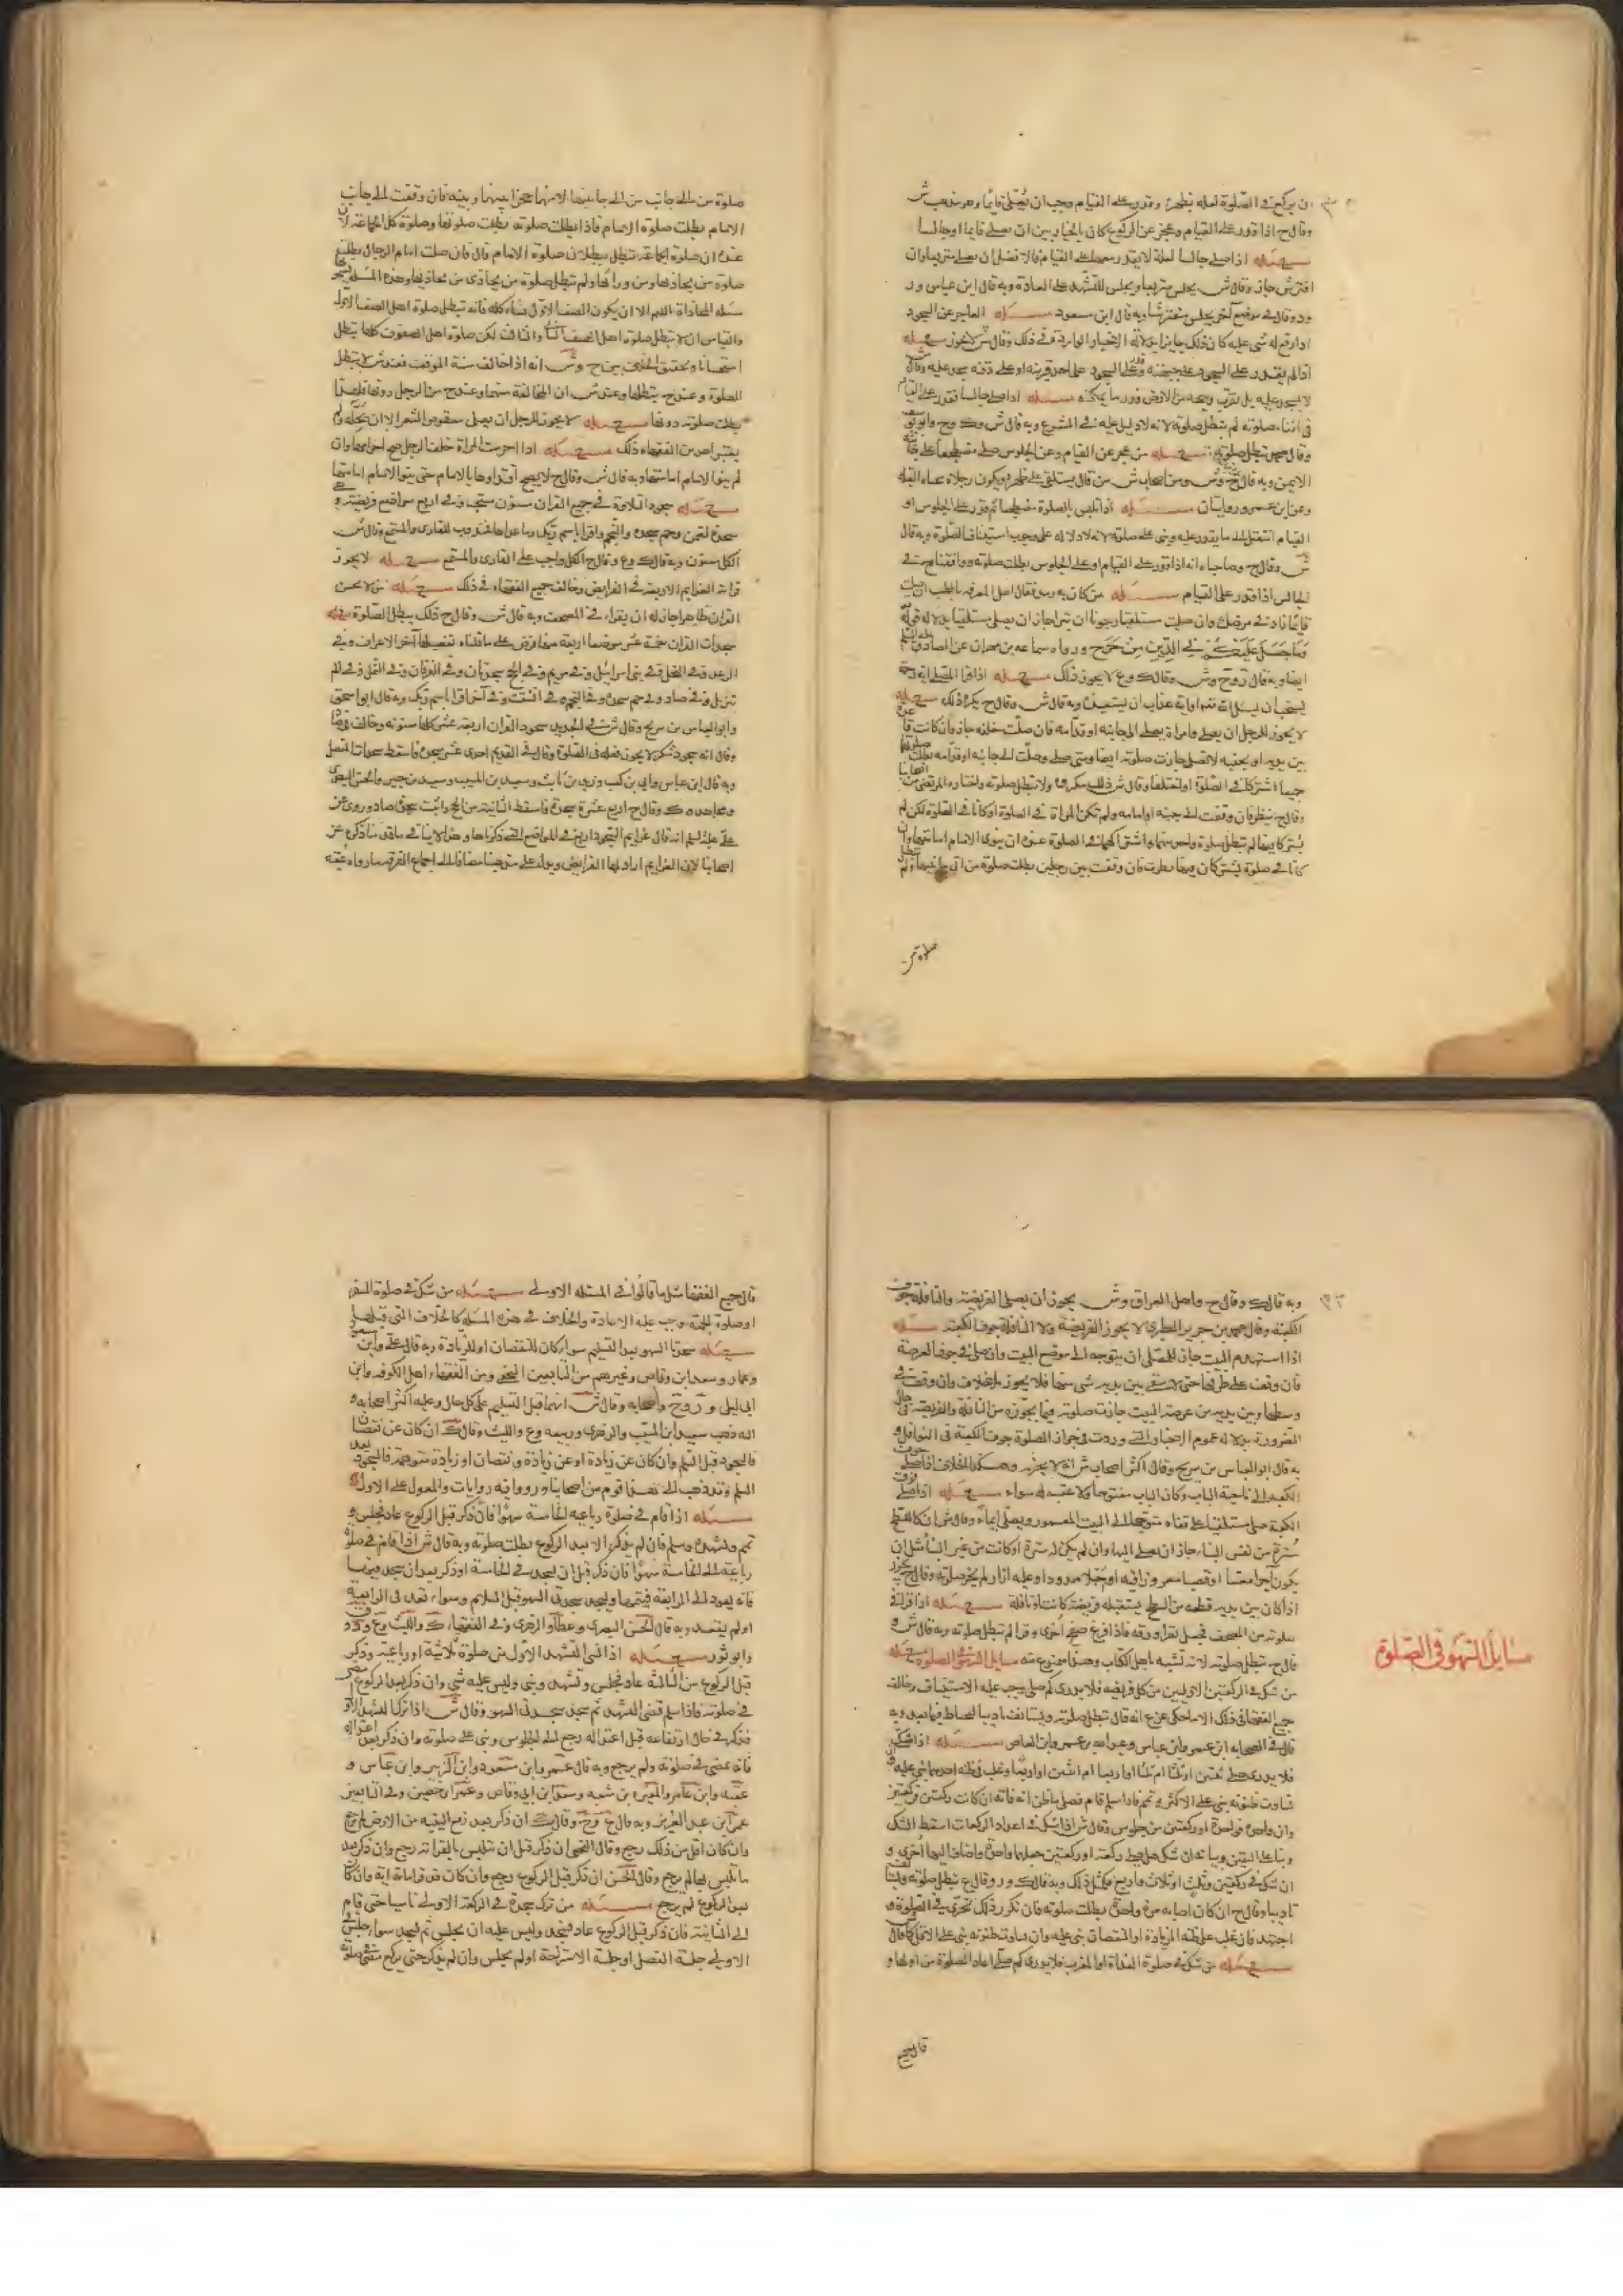 ان يركع في الصلوة لعلة بظهره وقدر على القيام وجب ان يصلى قايما وهو مذهب ش
وقال ح اذا قدر على القيام وعجز عن الركوع كان بالخيار بين ان يصلى قايما او جالسا
مسئله اذا صلى جالسا لعلة لا يقدر معها على القيام فالافضل ان يصلى متربعا وان
افترش جاز وقال ش يجلس متربعا ويجلس للتشهد على العادة وبه قال ابن عباس و
وقال في موضع آخر يجلس مفترشا وبه قال ابن مسعود مسئله العاجز عن السجود
اذا رفع له شئ عليه كان ذلك جايزا الاخبار الواردة في ذلك وقال ش لا يجوز مسئله
اذا لم يقدر على السجود على جبهته وقدر على السجود على احد قرنيه او على ذقنه سجد عليه وقال
لا يسجد عليه بل يقرب وجهه من الارض قدر ما يمكنه مسئله اذا صلى جالسا فقدر على القيام
في اثناء صلوته لم تبطل صلوته لانه لا دليل عليه في الشرع وبه قال ش
وقال محمد تبطل صلوته مسئله من عجز عن القيام وعن الجلوس صلى مضطجعا على جانبه
الايمن وبه قال ش ومن اصحاب ش من قال يستلقى على ظهره ويكون رجلاه تجاه القبلة
وعن ابن عمر روايتان مسئله اذا تلبس بالصلوة مضطجعا ثم قدر على الجلوس او
القيام انتقل الى ما يقدر عليه وبنى على صلوته لانه لا دلالة على وجوب استيناف الصلوة وبه قال
ش وقال ح وصاحباه انه اذا قدر على القيام او على الجلوس بطلت صلوته ووافقنا ح في
الجالس اذا قدر على القيام مسئله من كان به رمد فقال اهل المعرفة بالطب ان صليت
قايما زاد في مرضك وان صليت مستلقيا رجونا ان تبرأ جاز ان يصلى مستلقيا بدلالة قوله
وما جعل عليكم في الدين من حرج ورواه سماعه بن مهران عن الصادق
ايضا وبه قال ح وش وقال ك وع لا يجوز ذلك مسئله اذا قرأ المصلى اية رحمة
يستحب ان يسئلها او اية عذاب ان يستعيذ وبه قال ش وقال ح يكره ذلك مسئله
لا يجوز للرجل ان يصلى وامراة تصلى الى جانبه او قدامه فان صلت خلفه جاز وان كانت
بين يديه او بجنبه لا تصلى جازت صلوته ايضا ومتى صلى وصلت الى جانبه او قدامه بطلت صلوتهما
جميعا اشتركا في الصلوة او اختلفا وقال ش ذلك مكروه ولا تبطل صلوته واختاره المرتضى من اصحابنا
وقال ح ينظر فان وقفت الى جنبه او امامه ولم تكن المراة في الصلوة او كانا في الصلوة لكن لم
يشتركا فيها لم تبطل صلوة واحد منهما واشتراكهما في الصلوة عنده ان ينوى الامام امامتهما وان
كانا في صلوة يشتركان فيها نظرت فان وقفت بين رجلين بطلت صلوة من الى جانبيها ولم
صلوة من
صلوة من الى جانب من الى جانبها لانهما حجزا بينها وبينه فان وقفت الى جانب
الامام بطلت صلوة الامام فاذا بطلت صلوته بطلت صلوتها وصلوة كل الجماعة لان
عنده ان صلوة الجماعة تبطل ببطلان صلوة الامام قال فان صلت امام الرجال بطلت
صلوة من يحاذيها ومن وراءها ولم تبطل صلوة من يحاذى من يحاذيها وهذه المسئلة يسمونها
مسئلة المحاذاة اللهم الا ان يكون الصف الاول نساء كله فانه تبطل صلوة اهل الصف الاول
والقياس ان لا تبطل صلوة اهل الصف الثاني والثالث لكن صلوة اهل الصفوف كلها تبطل
استحسانا وتحقيق الخلاف بين ح وش انه اذا خالف سنة الموقف فعند ش لا تبطل
الصلوة وعند ح تبطلها وعند ش ان المخالفة منهما وعند ح من الرجل دونها فلهذا
بطلت صلوته دونها مسئله لا يجوز للرجل ان يصلى معقوص الشعر الا ان يحله ولم
يعتبر احد من الفقهاء ذلك مسئله اذا احرمت المراة خلف الرجل صح احرامها وان
لم ينو الامام امامتها وبه قال ش وقال ح لا يصح اقتداؤها بالامام حتى ينو الامام امامتها
مسئله سجود التلاوة في جميع القران مسنون مستحب وفي اربع مواضع فريضة
سجدة لقمن وحم سجده والنجم واقرا باسم ربك وما عداها مندوب للقارى والمستمع وقال ش
الكل مسنون وبه قال ك وع وقال ح الكل واجب على القارى والمستمع مسئله لا يجوز
قراءة العزايم الاربعة في الفرايض وخالف جميع الفقهاء في ذلك مسئله من لا يحسن
القران ظاهرا جاز له ان يقراء في المصحف وبه قال ش وقال ح ذلك يبطل الصلوة مسئله
سجدات القران خمسة عشر موضعا اربعة منها فرض على ما قلناه تفصيلها آخر الاعراف وفي
الرعد وفي النحل وفي بنى اسرائيل وفي مريم وفي الحج سجدتان وفي الفرقان وفي النمل وفي الم
تنزيل وفي صاد وفي حم سجدة وفي النجم وفي انشقت وفي آخر اقرا باسم ربك وبه قال ابو اسحق
وابو العباس بن سريج وقال ش في الجديد سجود القران اربعة عشر كلها مسنونة وخالف في ص
وقال انه سجود شكر لا يجوز فعله في الصلوة وقال في القديم احدى عشر سجدة فاسقط سجدات المفصل
وبه قال ابن عباس وابي بن كعب وزيد بن ثابت وسعيد بن المسيب وسعيد بن جبير والحسن البصري
ومجاهد وك وقال ح اربع عشرة سجدة فاسقط الثانية من الحج واثبت سجدة صاد وروى عن
على عليه السلم انه قال عزايم السجود اربع في المواضع التي ذكرناها وهذا لا ينافي ما قدمنا ذكره عن
اصحابنا لان العزايم اراد بها الفرايض ويدل على مذهبنا مضافا الى اجماع الفرقة ما رواه عقبه
وبه قال ك وقال ح واهل العراق وش يجوز ان يصلى الفريضة والنافلة جوف
الكعبة وقال محمد بن جرير الطبري لا يجوز الفريضة ولا النافلة جوف الكعبة مسئله
اذا استهدم البيت جاز للمصلى ان يتوجه الى موضع البيت وان صلى في جوف العرصة
فان وقف على طرفها حتى لا يبقى بين يديه شئ منها فلا يجوز بلا خلاف وان وقف في
وسطها وبين يديه من عرصة البيت جازت صلوته فيما يجوزه من النافلة والفريضة حال
الضرورة بدلالة عموم الاخبار التي وردت في جواز الصلوة جوف الكعبة في النوافل و
به قال ابو العباس بن سريج وقال اكثر اصحاب ش انه لا يجزيه وهكذا الخلاف اذا صلى جوف
الكعبة الى ناحية الباب وكان الباب مفتوحا ولا عتبة له سواء مسئله اذا صلى فوق
الكعبة صلى مستلقيا على قفاه متوجها الى البيت المعمور ويصلى ايماء وقال ش ان كان للسطح
سترة من نفس البناء جاز ان يصلى اليها وان لم يكن له سترة او كانت من غير البناء مثل ان
يكون آجرا معبا او قصبا مغروزا فيه او حبلا ممدودا وعليه ازار لم يجز صلوته وقال ح يجوز
اذا كان بين يديه قطعة من السطح يستقبله فريضة كانت او نافلة مسئله اذا قرأ في
صلوته من المصحف فجعل يقرأ ورقه فاذا فرغ صفح اخرى وقرا لم تبطل صلوته وبه قال ش و
قال ح تبطل صلوته لانه تشبه باهل الكتاب وهذا ممنوع منه مسايل السهو في الصلوة مسئله
من شك في الركعتين الاوليين من كل فريضه فلا يدرى كم صلى وجب عليه الاستيناف وخالف
جميع الفقهاء في ذلك الا ما حكى عن ع انه قال تبطل صلوته ويستانف تاديبا ليحتاط فيما بعد وبه
قال في الصحابه ابن عمر وابن عباس وعبد الله بن عمرو بن العاص مسئله اذا شك
فلا يدرى صلى ثنتين او ثلثا ام ثلثا او اربعا ام اثنتين او اربعا وغلب في ظنه احدهما بنى عليه فان
تساوت ظنونه بنى على الاكثر وتمم فاذا سلم قام فصلى ما ظن انه فاته ان كانت ركعتين فركعتين
وان واحدة فواحدة او ركعتين من جلوس وقال ش اذا شك في اعداد الركعات اسقط الشك
وبنا على اليقين وبيانه ان شك هل صلى ركعة او ركعتين جعلها واحدة واضاف اليها اخرى و
ان شك في ركعتين وثلث او ثلاث واربع فكمثل ذلك وبه قال ك ور وقال ع تبطل صلوته
تاديبا وقال ح ان كان اصابه مرة واحدة بطلت صلوته فان تكرر ذلك تحرى في الصلوة و
اجتهد فان غلب على ظنه الزيادة او النقصان بنى عليه وان تساوت ظنونه بنى على الاقل كما قال ش
مسئله من شك في صلوة الغداة او المغرب فلا يدرى كم صلى اعاد الصلوة من اولها و
قال جميع
مسايل السهو في الصلوة
قال جميع الفقهاء مثل ما قالوا في المسئله الاولى مسئله من شك في صلوة السفر
او صلوة الجمعة وجب عليه الاعادة والخلاف في هذه المسئلة كالخلاف التي قبلها
مسئله سجدتا السهو بعد التسليم سواء كان للنقصان او للزيادة وبه قال على وابن مسعود
وعمار وسعد ابن وقاص وغيرهم من التابعين النخعى ومن الفقهاء اهل الكوفه وابن
ابى ليلى و ر وح واصحابه وقال ش انهما قبل التسليم على كل حال وعليه اكثر اصحابه و
اليه ذهب سعيد ابن المسيب والزهرى وربيعه وع والليث وقال ك ان كان عن نقصان
فالسجود قبل السلم وان كان عن زيادة او عن زيادة ونقصان او زيادة متوهمة فالسجود بعد
السلم وقد ذهب الى هذا قوم من اصحابنا ورووا فيه روايات والمعول على الاول
مسئله اذا قام في صلوة رباعيه الى الخامسة سهوا فان ذكر قبل الركوع عاد فجلس و
تمم وتشهد وسلم فان لم يذكر الا بعد الركوع بطلت صلوته وبه قال ش اذا قام في صلوة
رباعية الى الخامسة سهوا فان ذكر قبل ان يسجد في الخامسة او ذكر بعد ان سجد فيها
فانه يعود الى الرابعة فيتمها ويسجد سجدتى السهو قبل السلام وسواء قعد في الرابعة
او لم يقعد وبه قال الحسن البصرى وعطا والزهرى وفي الفقهاء ك والليث وع ود
وابو ثور مسئله اذا نسى التشهد الاول من صلوة ثلاثية او رباعية وذكر
قبل الركوع من الثالثة عاد فجلس وتشهد وبنى وليس عليه شئ وان ذكر بعد الركوع مضى
في صلوته فاذا سلم قضى التشهد ثم سجد سجدتى السهو وقال ش اذا ترك التشهد الاول
فذكر في حال ارتفاعه قبل اعتداله رجع الى الجلوس وبنى على صلوته وان ذكر بعد اعتداله
فانه يمضى في صلوته ولم يرجع وبه قال عمر وابن مسعود وابن الزبير وابن عباس و
عقبه وابن عامر والمغيرة بن شعبه وسعد ابن ابى وقاص وعمران حصين وفي التابعين
عمر ابن عبد العزيز وبه قال ح وقال ك ان ذكر بعد رفع اليتيه من الارض لم يرجع
وان كان اقل من ذلك رجع وقال النخعى ان ذكر قبل ان تلبس بالقراءة رجع وان ذكر بعد
ما تلبس بها لم يرجع وقال الحسن ان ذكر قبل الركوع رجع وان كان قد قرا ماية اية وان كان
بعد الركوع لم يرجع مسئله من ترك سجدة في الركعة الاولى ناسيا حتى قام
الى الثانية فان ذكر قبل الركوع عاد فسجد وليس عليه ان يجلس ثم يسجد سواء جلس في
الاولى جلسة الفصل او جلسة الاستراحة او لم يجلس وان لم يذكر حتى يركع مضى في صلوته